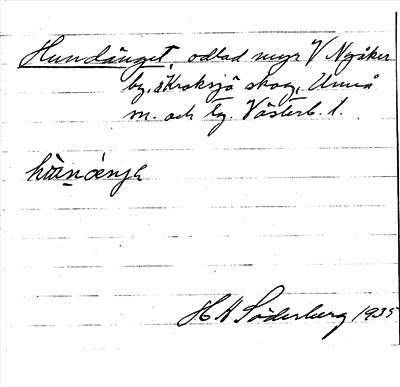 Hundänget, odlad myr V Nyåker
by, å Kroksjö skog, Umeå
m. och tg. Västerb. l.
hùnænja
H H Söderberg 1935